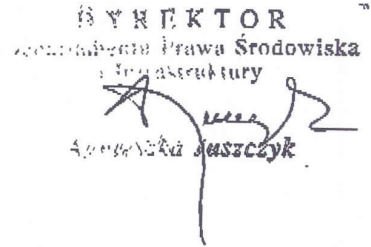 DYREKTOR
Departamentu Prawa Środowiska
i Infrastruktury
Agnieszka Juszczyk